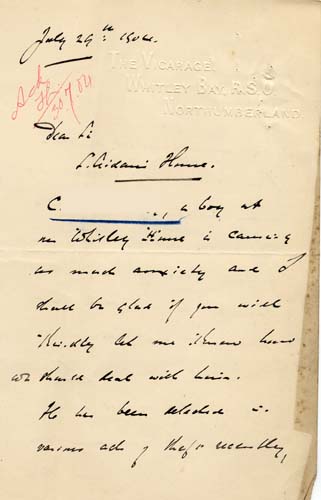 July 29th 1904.
THE VICARAGE,
WHITLEY BAY, R.S.O.
NORTHUMBERLAND.
Ack
30/7/04
Dear Sir
S. Aidan's Home.
C. , a boy at
our Whitley Home is causing
us much anxiety and I
shall be glad if you will
kindly let me know how
we should deal with him.
He has been detected in
various acts of theft recently,